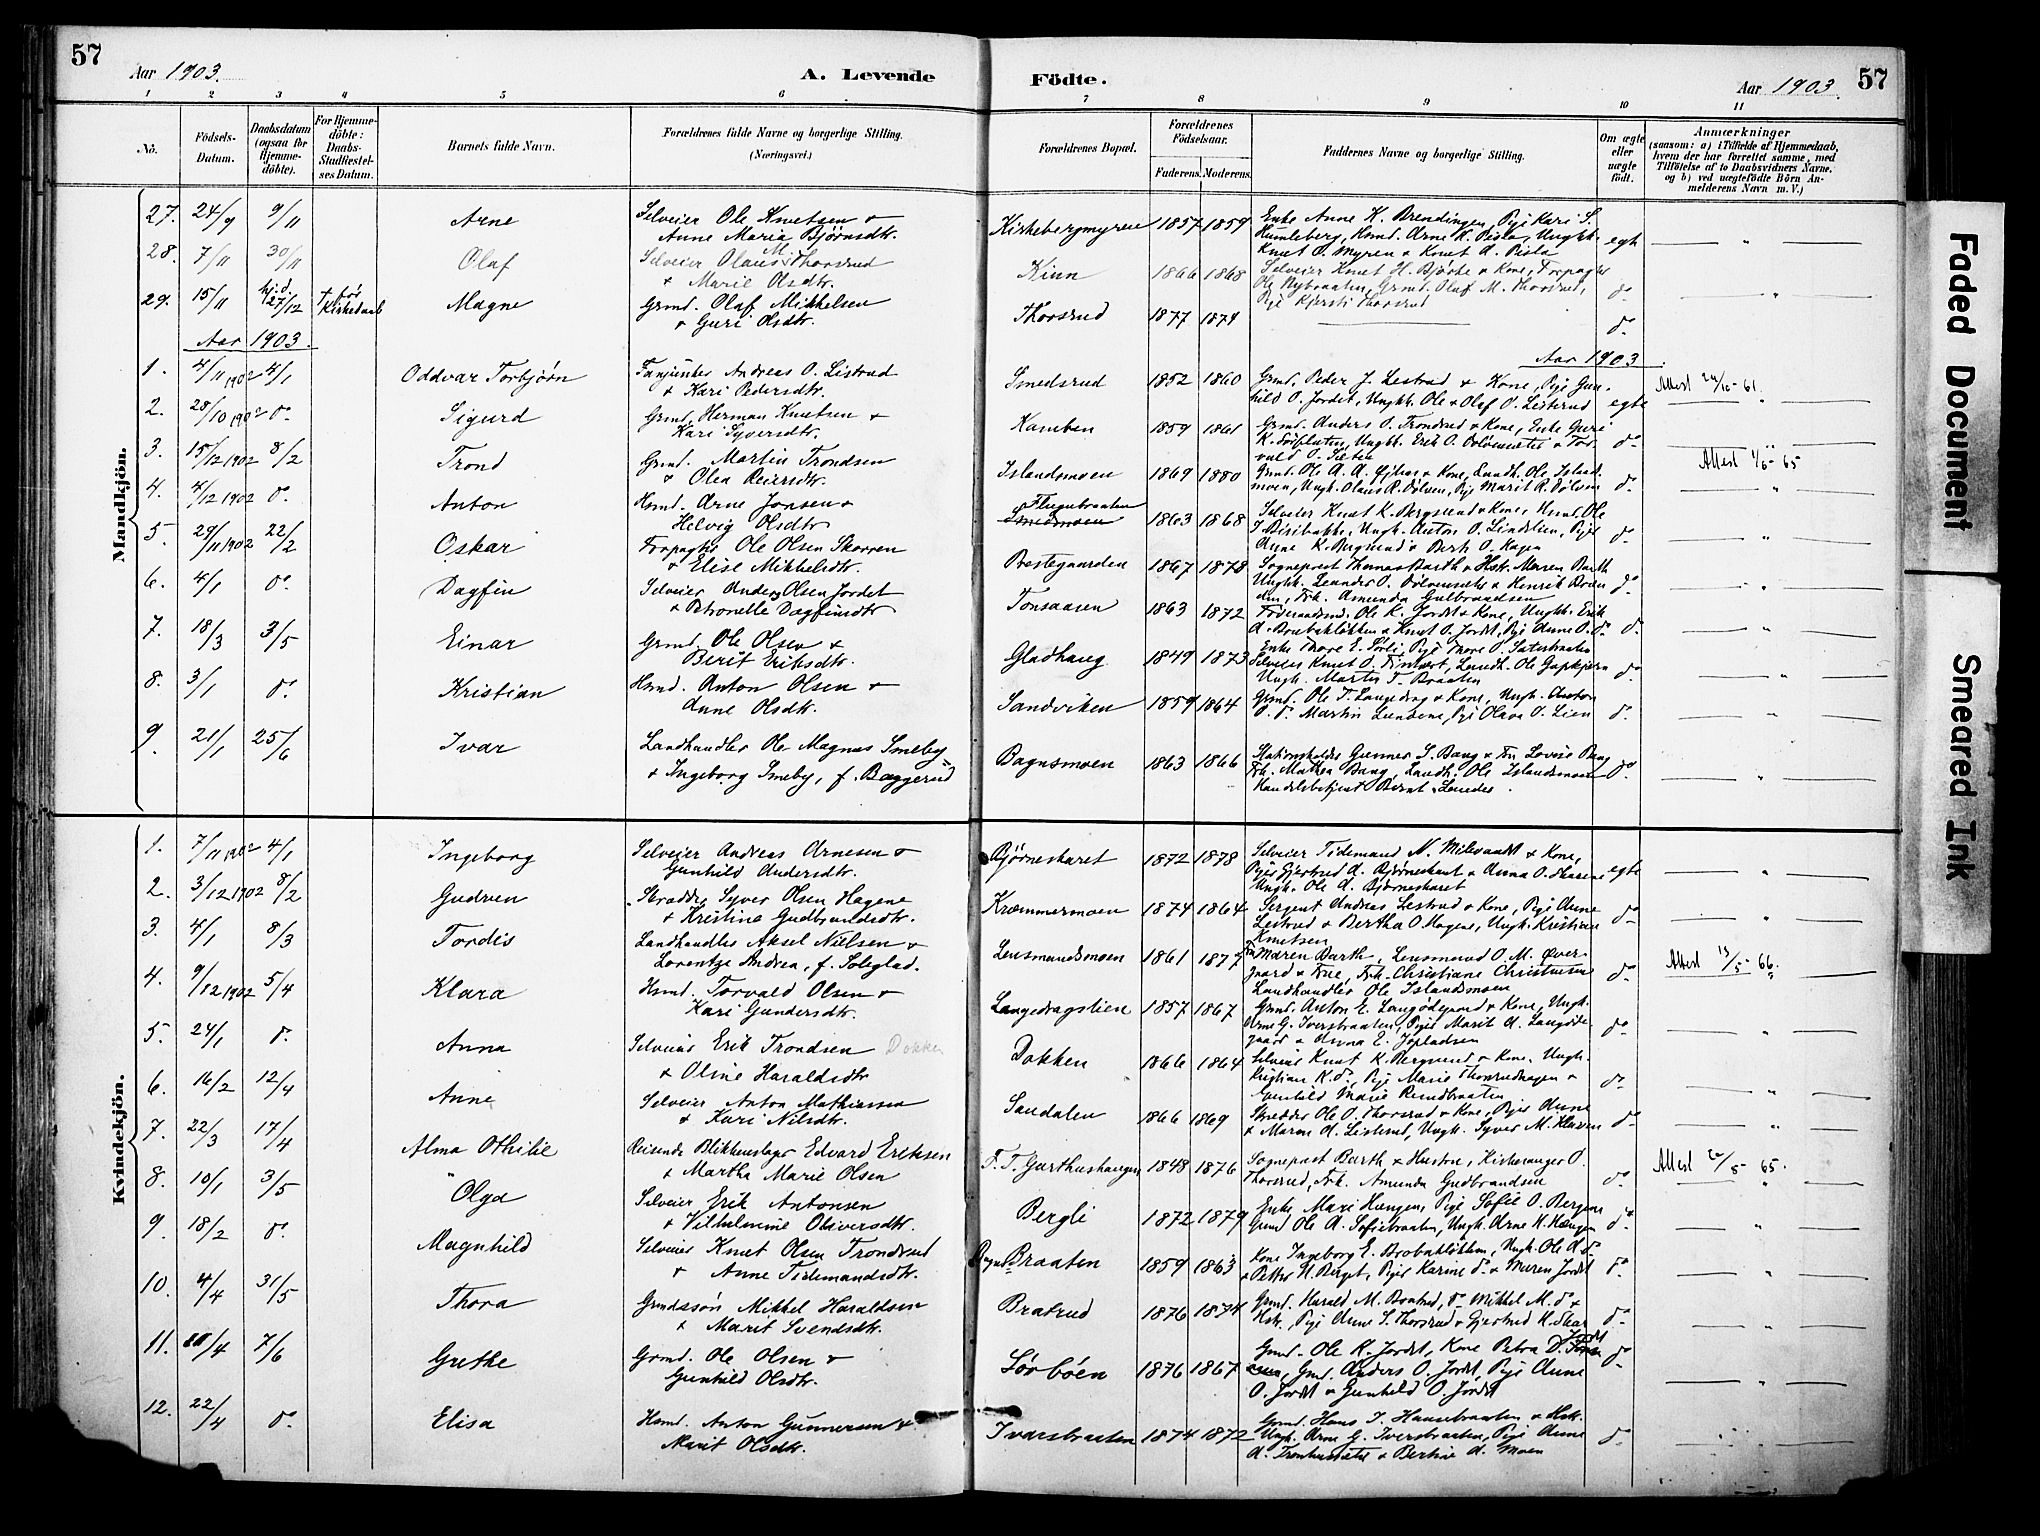 57
Aar 1903.
A. Levende
Födte.
Aar 1903.
57
1 2 3 4 5 6 7 8 9 10 11
No.
Födsels-
Datum.
Daabsdatum
(ogsaa for
Hjemme-
döbte).
For Hjemme-
döbte:
Daabs-
Stadfæstel-
ses Datum.
Barnets fulde Navn.
Forældrenes fulde Navne og borgerlige Stilling.
(Næringsvei.)
Forældrenes Bopæl.
Forældrenes
Födselsaar.
Faderens. Moderens.
Faddernes Navne og borgerlige Stilling.
Om ægte
eller
uægte
födt.
Anmærkninger
(saasom: a) i Tilfælde af Hjemmedaab,
hvem der har forrettet samme, med
Tilföielse af to Daabsvidners Navne,
og b) ved uægtefödte Börn An-
melderens Navn m. V.)
Mandkjön.
27. 24/9 9/11 Arne
Selveier Ole Knutsen &
Anne Maria Bjørnsdtr.
Kirkebergmyren 1857 1859
Enke Anne K. Brendingen, Pige Kari S.
Humleberg, Hsmd. Arne K. Pisla, Ungk.
Knut O. Myren & Knut A. Pisla
egte
28. 7/11 30/11 Olaf
Selveier Olaus M. Thorsrud
& Marie Olsdtr.
Kinn 1866 1868
Selveier Knut H. Bjørke & Kone, Forpagter
Ole Nybraaten, Grmd. Olaf M. Thorsrud,
Pige Kjersti Thorsrud
do
29. 15/11 hj.d. 27/12 † før Kirkedaab Magne
Grmd. Olaf Mikkelsen
& Guri Olsdtr.
Thorsrud 1877 1874 do
Aar 1903.
Aar 1903.
1. 4/11 1902 4/1 Oddvar Torbjørn
Fanjunker Andreas O. Listrud
& Kari Pedersdtr.
Smedsrud 1852 1860
Grmd. Peder J. Lestrud & Kone, Pige Gun-
hild O. Jordet, Ungk. Ole & Olaf O. Listerud
egte
Attest 24/10-61.
2. 28/10 1902 do. Sigurd
Grmd. Herman Knutsen &
Kari Syversdtr.
Kamben 1859 1861
Grmd. Anders O. Trondrud & Kone, Enke Guri
vald O. Sæter
do
3. 15/12 1902 8/2 Trond
Grmd. Martin Trondsen
& Olea Reiersdtr.
Islandsmoen 1869 1880
moen, Ungk. Olaus R. Dølven, Pige Marit R. Dølven
do
Attest 1/6-65
4. 4/12 1902 do. Anton
Hsmd. Arne Jonsen &
Helvig Olsdtr
Smedmoen 1863 1868
Selveier Knut K. Bergsrud & Kone, Hsmd. Ole
Anne K. Bergsrud & Berte O. Hagen
do
5. 29/11 1902 22/2 Oskar
Forpagter Ole Olsen Skorren
& Elise Mikkelsdtr.
Prestegaarden 1867 1878
Sogneprest Thomas Barth & Hstr. Maren Barth
den, Frk. Amunda Gulbrandsen
do
6. 4/1 do. Dagfin
Selveier Anders Olsen Jordet
& Petronelle Dagfinsdtr
Tonsaasen 1863 1872
Føderaadsmd. Ole K. Jordet & Kone, Ungk. Erik
A. Brobakløkken & Knut O. Jordet, Pige Anne O. do.
do.
7. 18/3 3/5 Einar
Grmd. Ole Olsen &
Berit Eriksdtr.
Gladhaug 1849 1873
Ungk. Martin T. Braaten
do
8. 3/1 do. Kristian
Hsmd. Anton Olsen &
Anne Olsdtr.
Sandviken 1859 1864
Grmd. Ole T. Langedrag & Kone, Ungk. Anton
O. do. Martin Lundene, Pige Olava O. Lien
do.
9. 21/1 25/6 Ivar
Landhandler Ole Magnus Smeby
& Ingeborg Smeby, f. Baggerud
Bagnsmoen 1863 1866
Stationsholder Gunner S. Bang & Fru Lovise Bang
Frk. Mathea Bang, Landh. Ole Islandsmoen
Handelsbetjent Bernt Londes.
do.
Kvindekjön.
1. 7/11 1902 4/1 Ingeborg
Selveier Andreas Arnesen &
Gunhild Andersdtr.
Bjørneskaret 1872 1878
Selveier Tidemand N. Milevandt & Kone,
Pige Gjertrud A. Bjørneskaret & Anna O. Skarene
Ungk. Ole A. Bjørneskaret
egte
2. 3/12 1902 8/2 Gudrun
Skrædder Syver Olsen Hagene
& Kristine Gudbrandsdtr.
Kræmmermoen 1874 1864
Sergent Andreas Lestrud & Kone, Pige Anne
Lestrud & Bertha O. Hagene, Ungk. Kristian
Knutsen
do
3. 4/1 8/3 Tordis
Landhandler Aksel Nielsen &
Lorentze Andrea, f. Soleglad.
Lensmandsmoen 1861 1877
Fru Maren Barth, Lensmand O. M. Øver-
gaard & Frue, Frk. Christiane Christensen
Landhandler Ole Islandsmoen
do
Attest 13/5-66.
4. 9/12 1902 5/4 Klara
Hsmd. Torvald Olsen &
Kari Gundersdtr.
Langedragslien 1857 1867
Grmd. Anton E. Langødegaard & Kone, Ungk.
Arne G. Iversbraaten, Pige Marit A. Langøde-
gaard & Anna E. Jøpladsen
do
5. 24/1 do. Anna
Selveier Erik Trondsen Dokken
& Oline Haraldsdtr
Dokken 1866 1864
Selveier Knut K. Bergsrud & Kone, Ungk.
Kristian K. do, Pige Marie Thorsrudhagen &
Gunhild Marie Rundbraaten
do
6. 16/2 12/4 Anne
Selveier Anton Mathiassen
& Kari Nilsdtr.
Saudalen 1866 1869
Skrædder Ole O. Thorsrud & Kone, Pige Anne
& Maren A. Listerud, Ungk. Syver M. Kleiven
do
7. 22/3 17/4 Alma Othilie
Reisende Blikkenslager Edvard Eriksen
& Martha Marie Olsen
F. T. Garthushaugen 1848 1876
Sogneprest Barth & Hustru, Kirkesanger O.
Thorsrud, Frk. Amunda Gudbrandsen
do
Attest 20/8-65.
8. 10/1 3/5 Olga
Selveier Erik Antonsen
& Vilhelmine Oliversdtr.
Bergli 1872 1879
Enke Mari Haugen, Pige Sofie O. Bergene
Grmd Ole A. Sofiebraaten, Ungk. Arne H. Haugen
do
9. 18/2 do. Magnhild
Selveier Knut Olsen Trondrud
& Anne Tidemandsdtr.
Bagns-Braaten 1859 1863
Kone Ingeborg E. Brobakløkken, Ungk. Ole A. do
& Petter H. Berget, Pige Karine do. & Maren Jordet
do
10. 4/4 31/5 Thora
Grmdssøn Mikkel Haraldsen
& Marit Svendsdtr.
Bratrud 1876 1874
Grmd. Harald M. Bratrud, do. Mikkel M. do &
Hstr, Pige Anne S. Thorsrud & Gjertrud K. Skar
do
11. 10/4 7/6 Grethe
Grmd. Ole Olsen &
Gunhild Olsdtr.
Sørbøen 1876 1867
Grmd. Ole K. Jordet, Kone Petra D. Jordet
Grmd. Anders O. Jordet, Pige Anne
O. Jordet & Gunhild O. Jordet
do
12. 22/4 do. Elisa
Hsmd. Anton Gunnersen &
Marit Olsdtr.
Ivarsbraaten 1874 1872
Grmd. Hans T. Hansebraaten & Hstr.
Ungk. Arne G. Iversbraaten, Pige Anne
A. Tronhussæter & Bertine A. Moen
do
Faded Document
Smeared Ink